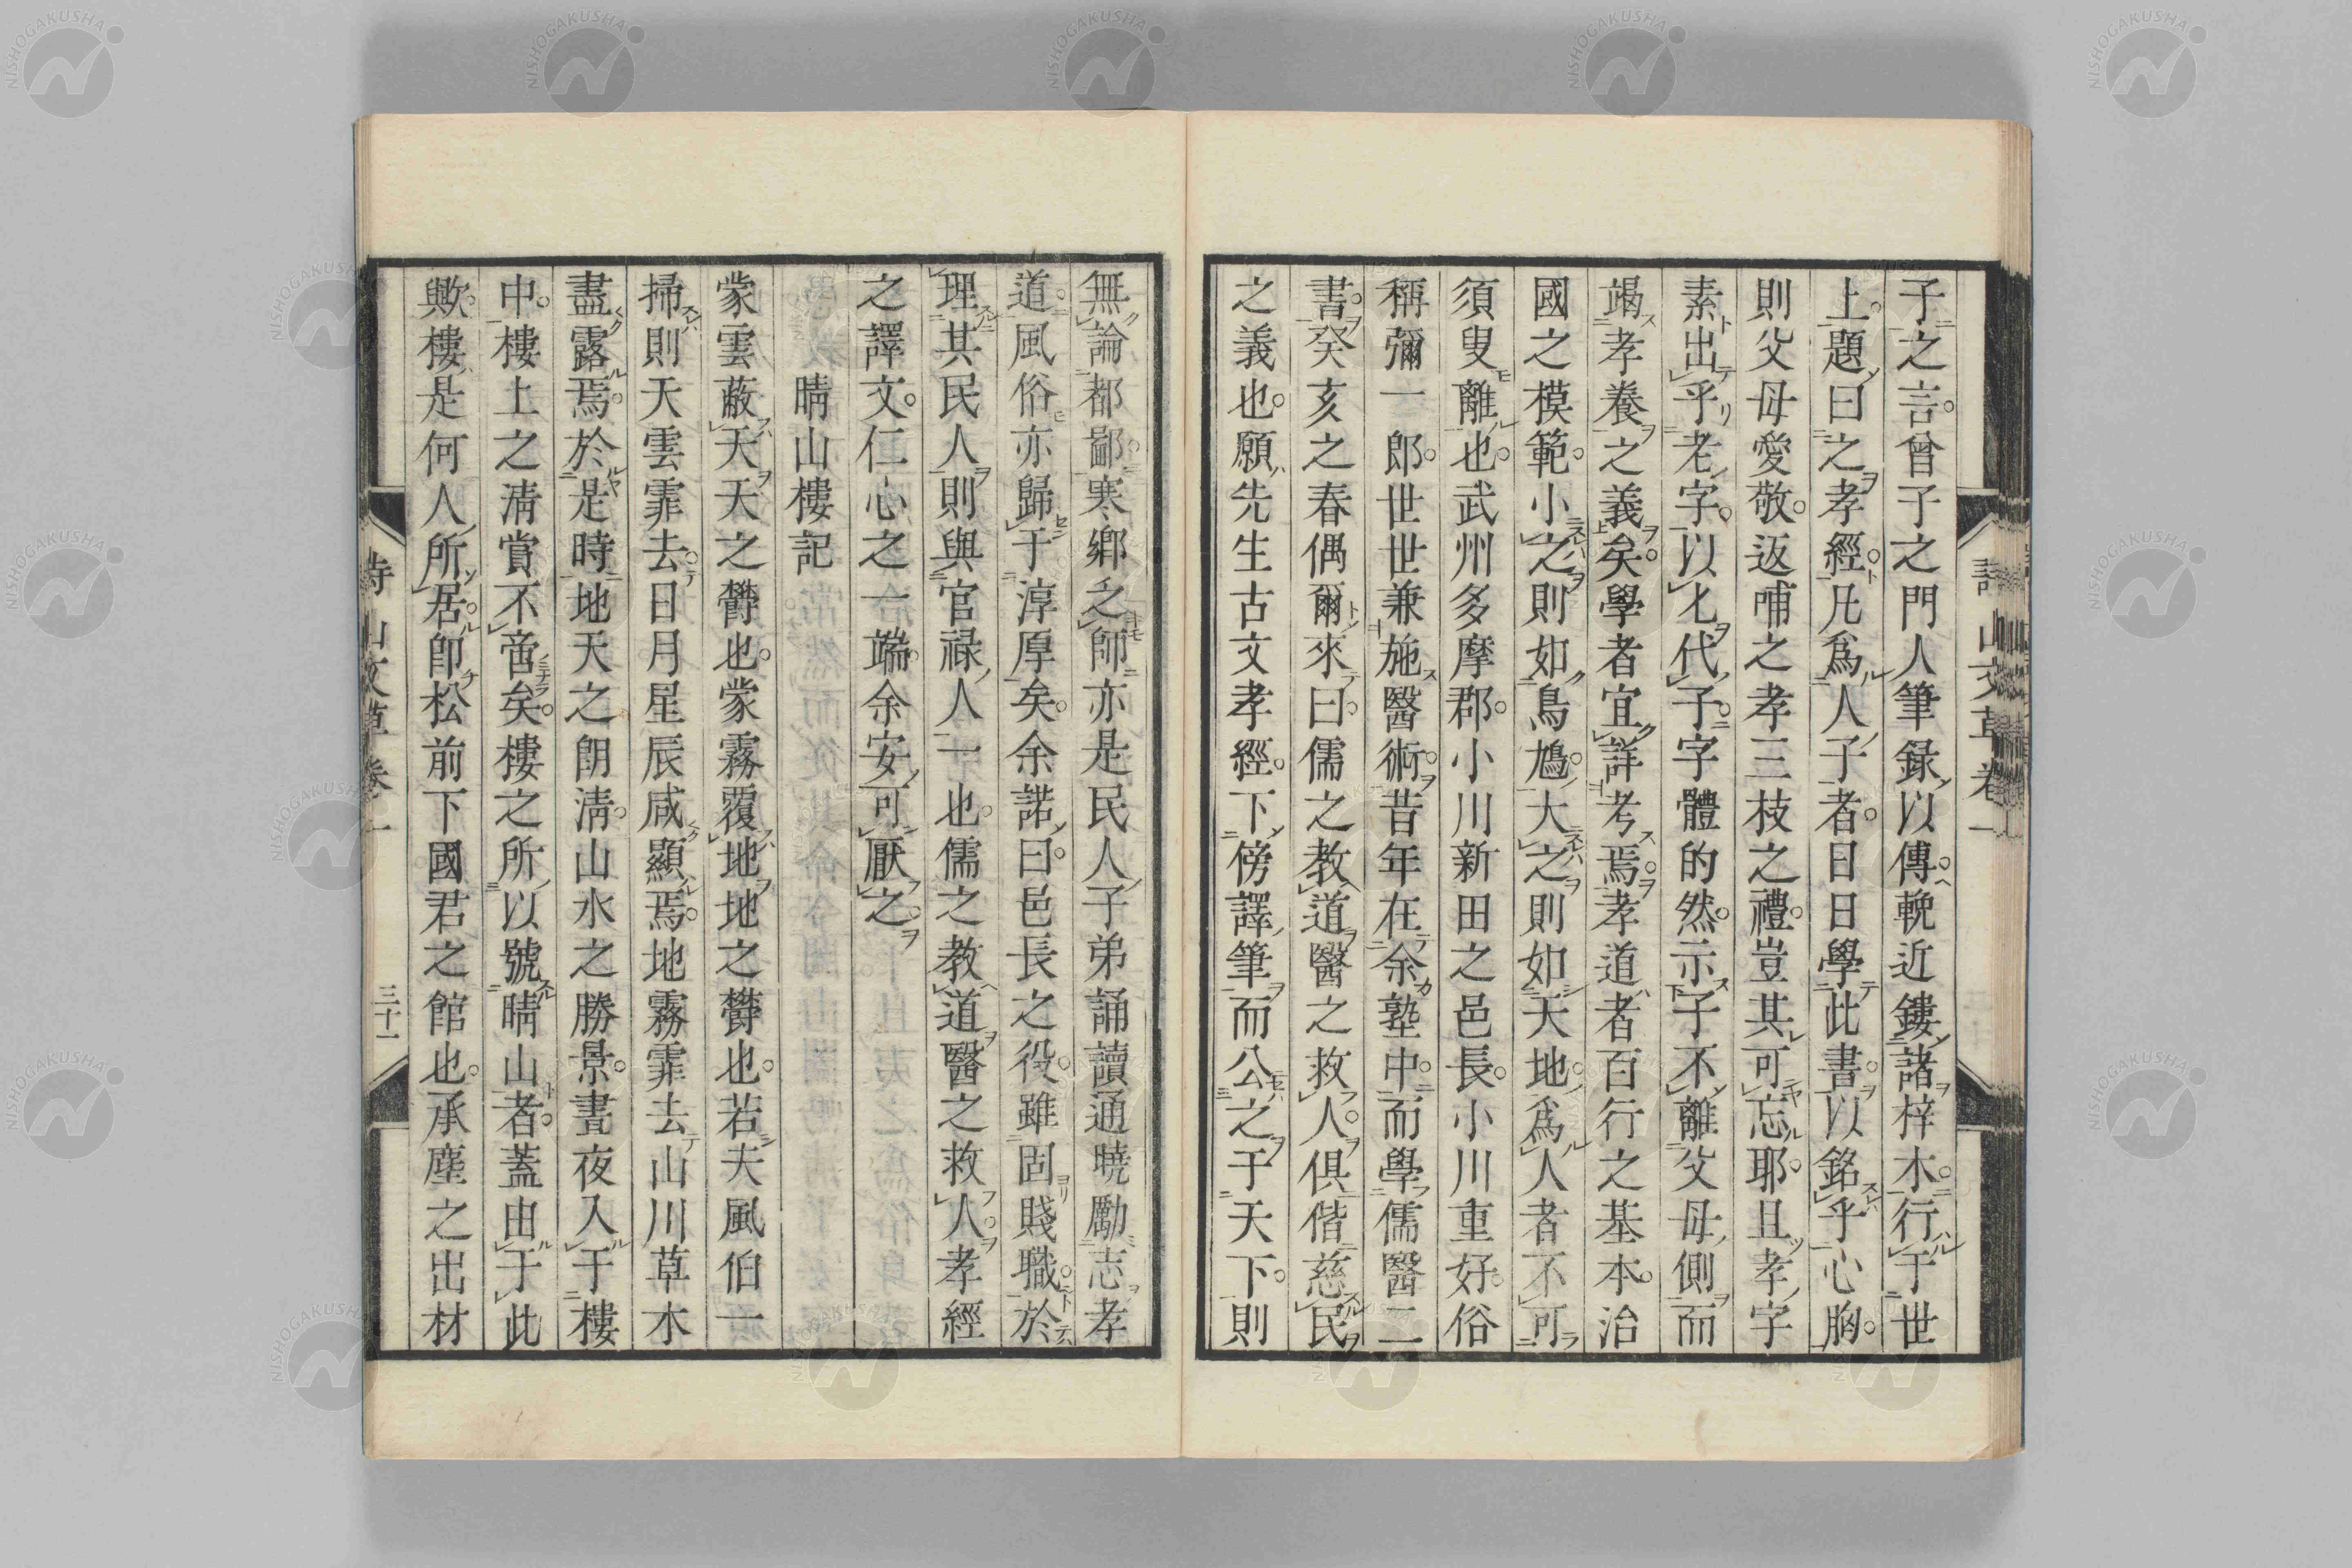 子之言。曾子之門人筆錄以傳。輓近鏤諸梓木。行于世
上。題曰之孝經。凡爲人子者。日日學此書。以銘乎心胸。
則父母愛敬。返哺之孝三枝之禮。豈其可忘耶。且孝字
素出乎老字。以匕代子。字體的然。示子不離父母側而
竭孝養之義矣。學者宜詳考焉。孝道者百行之基本。治
國之模範。小之則如鳥鳩。大之則如天地。爲人者不可
須叟離也。武州多摩郡。小川新田之邑長。小川重好。俗
稱彌一郎。世世兼施醫術。昔年在余塾中。而學儒醫二
書。癸亥之春偶爾來曰。儒之教道醫之救人。俱偕慈民
之義也。願先生古文孝經。下傍譯筆而公之于天下。則
無論都鄙。寒鄉之師亦是民人子弟誦讀通曉勵志孝
道。風俗亦歸于淳厚矣。余諾曰。邑長之役。雖固賤職。於
理其民人則與官祿人一也。儒之教道醫之救人。孝經
之譯文。仁心之一端。余安可厭之。
晴山樓記
蒙雲蔽天天之欝也。蒙霧覆地地之欝也。若夫風伯一
掃則天雲霏去。日月星辰咸顯焉。地霧霏去山川草木
盡露焉。於是時地天之朗清。山水之勝景。晝夜入于樓
中。樓上之清賞不啻矣。樓之所以號晴山者。蓋由于此
歟。樓是何人所居。卽松前下國君之館也。承塵之出材
詩山文草卷一
詩山文草卷一
三十一
NISHOGAKUSHA